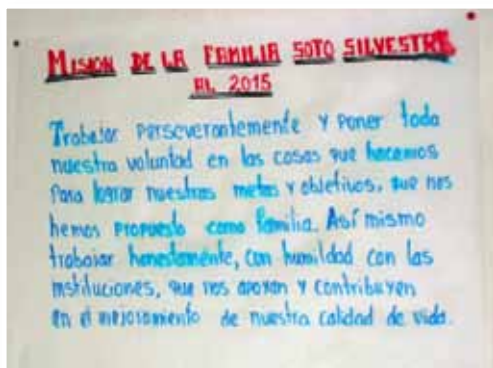 MISION DE LA FAMILIA SOTO SILVESTRE
AL 2015
Trabajar perseverantemente y poner toda
nuestra voluntad en las cosas que hacemos
para lograr nuestras metas y objetivos, que nos
hemos propuesto como familia. Así mismo
trabajar honestamente, con humildad con las
instituciones, que nos apoyan y contribuyen
en el mejoramiento de nuestra calidad de vida.